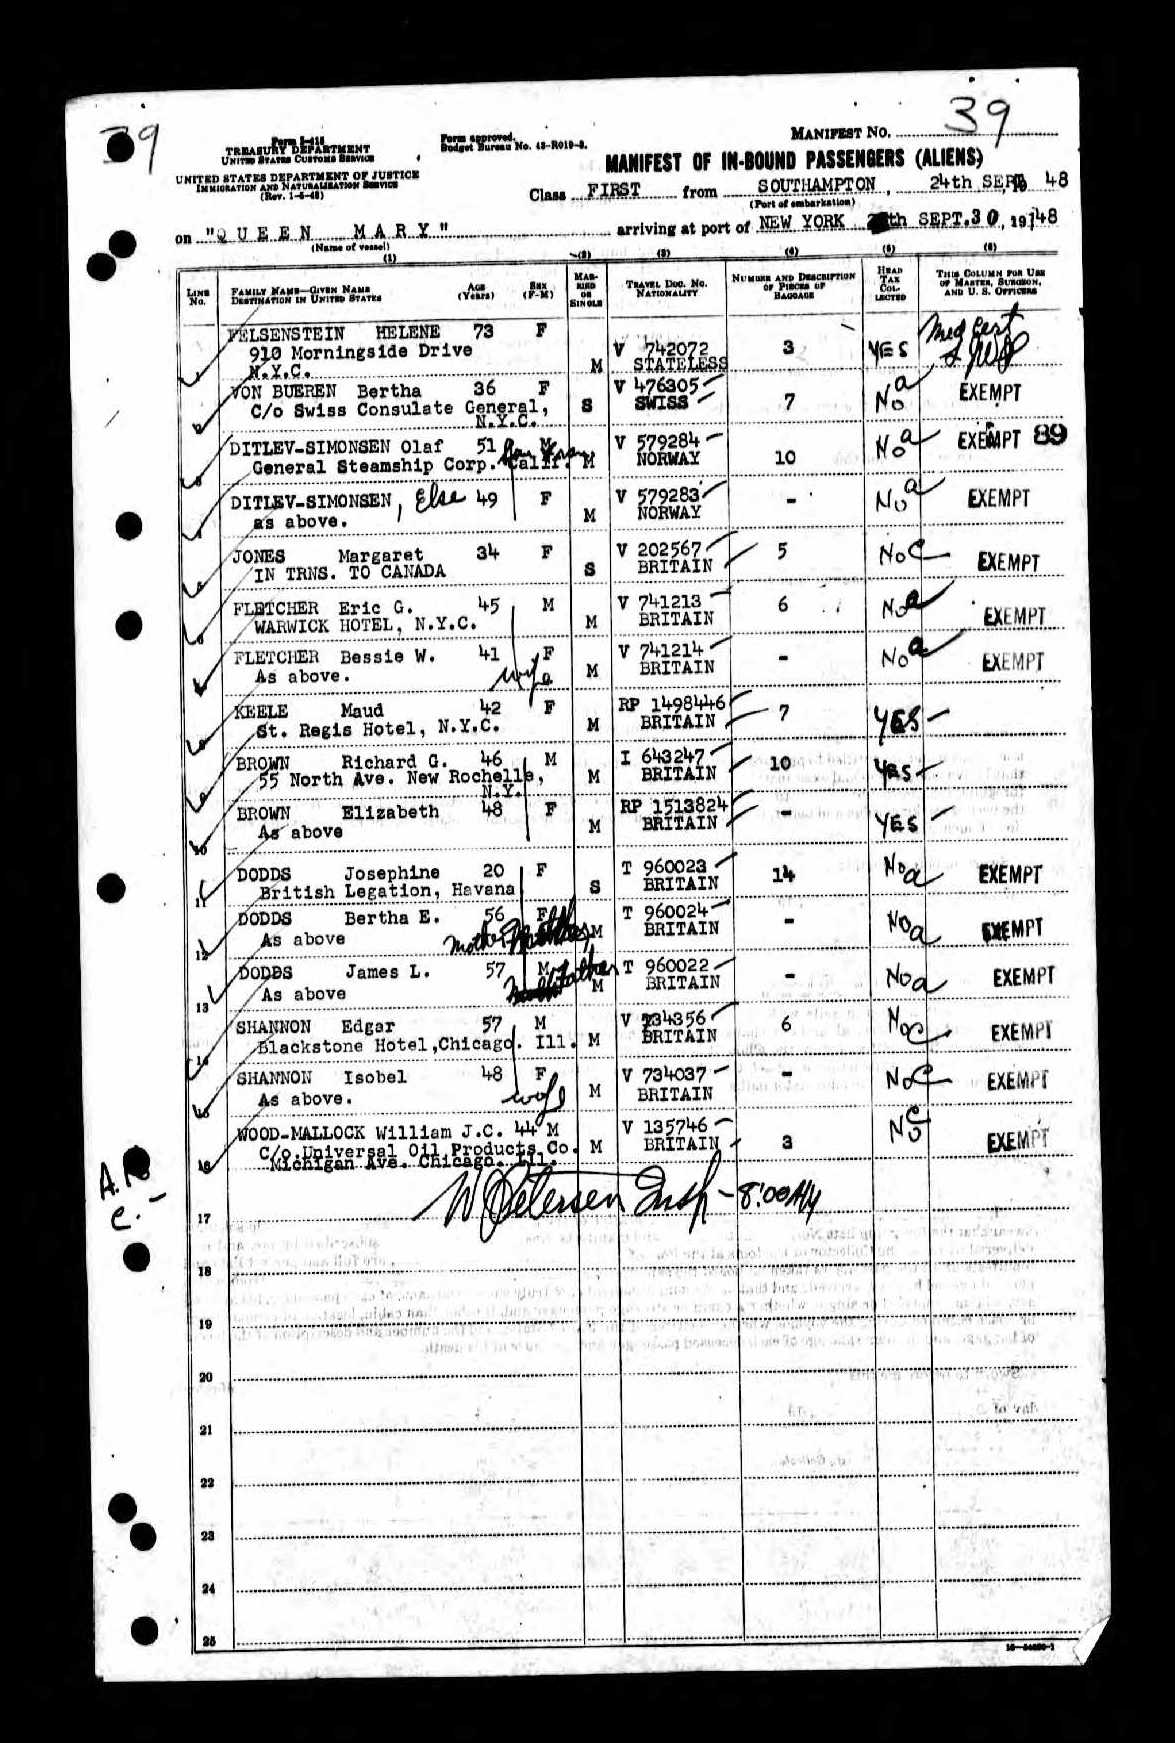 39
39
Form I-415
TREASURY DEPARTMENT
UNITED STATES CUSTOMS SERVICE
UNITED STATES DEPARTMENT OF JUSTICE
IMMIGRATION AND NATURALIZATION SERVICE
(Rev. 1-5-48)
Form approved.
Budget Bureau No. 43-R019-2.
MANIFEST NO.
MANIFEST OF IN-BOUND PASSENGERS (ALIENS)
Class FIRST from SOUTHAMPTON, 24th SEPT. 48
(Port of embarkation)
on "QUEEN MARY" arriving at port of NEW YORK th SEPT.30, 1948
(Name of vessel)
(1) (2) (3) (4) (5) (6)
LINE No. FAMILY NAME—GIVEN NAME DESTINATION IN UNITED STATES AGE (Years) SEX (F-M) MARRIED OR SINGLE TRAVEL DOC. NO. NATIONALITY NUMBER AND DESCRIPTION OF PIECES OF BAGGAGE HEAD TAX COLLECTED THIS COLUMN FOR USE OF MASTER, SURGEON, AND U. S. OFFICERS
FELSENSTEIN HELENE 73 F Med Cert
910 Morningside Drive V 742072 3 YES
N.Y.C. M STATELESS
VON BUEREN Bertha 36 F V 476305 No a EXEMPT
C/o Swiss Consulate General, S SWISS 7
N.Y.C.
DITLEV-SIMONSEN Olaf 51 M V 579284 No a EXEMPT 89
General Steamship Corp. Calif. M NORWAY 10
DITLEV-SIMONSEN, Else 49 F V 579283 - No a EXEMPT
as above. M NORWAY
JONES Margaret 34 F V 202567 5 No C EXEMPT
IN TRNS. TO CANADA S BRITAIN
FLETCHER Eric G. 45 M V 741213 6 No a EXEMPT
WARWICK HOTEL, N.Y.C. M BRITAIN
FLETCHER Bessie W. 41 F V 741214 - No a EXEMPT
As above. wife M BRITAIN
KEELE Maud 42 F RP 1498446 7 YES -
St. Regis Hotel, N.Y.C. M BRITAIN
BROWN Richard G. 46 M I 643247 10 YES -
55 North Ave. New Rochelle, M BRITAIN
N.Y.
BROWN Elizabeth 48 F RP 1513824 - YES -
As above M BRITAIN
10
DODDS Josephine 20 F T 960023 14 No a EXEMPT
British Legation, Havana S BRITAIN
11
DODDS Bertha E. 56 F T 960024 - No a EXEMPT
As above mother M BRITAIN
12
DODDS James L. 57 M T 960022 - No a EXEMPT
As above father M BRITAIN
13
SHANNON Edgar 57 M V 734356 6 No c EXEMPT
Blackstone Hotel, Chicago. Ill. M BRITAIN
14
SHANNON Isobel 48 F V 734037 - No C EXEMPT
As above. wife M BRITAIN
15
WOOD-MALLOCK William J.C. 44 M V 135746 No c EXEMPT
C/o. Universal Oil Products Co. M BRITAIN 3
Michigan Ave. Chicago. Ill.
16
W Petersen Insp - 8:00 AM
17
18
19
20
21
22
23
24
25